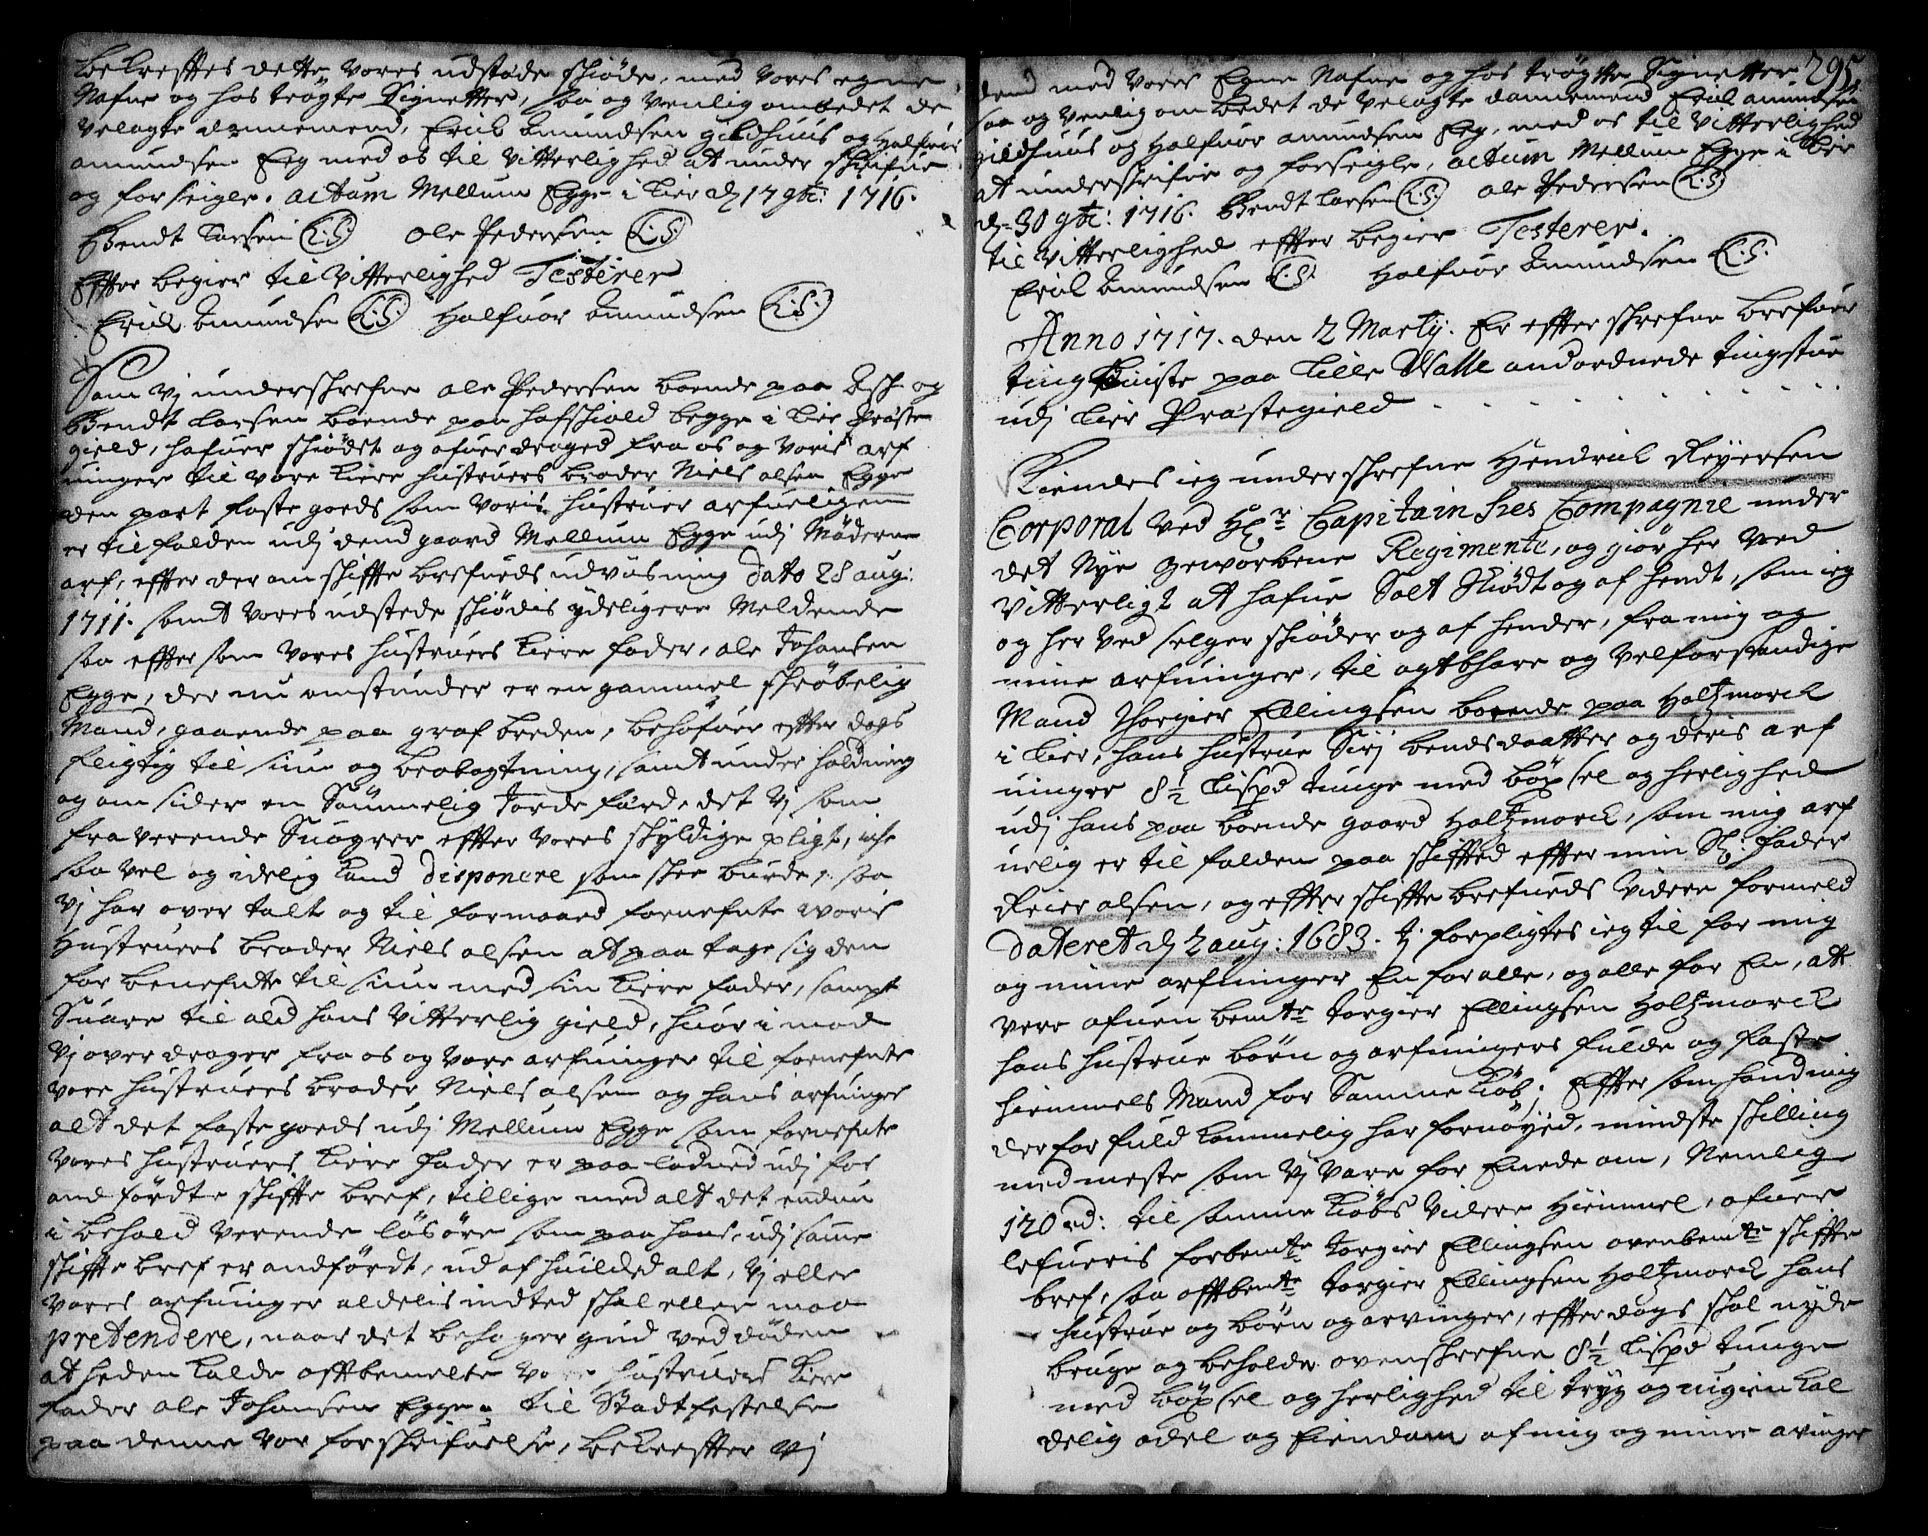 bekrefftes dette vores udstæde skiøde, med vores egne
Nafne og hos trögte Signetter, saa og venlig ombedet de
velagte dannemend, Erick Amundsen gildhuus og Halfuor
amundsen Eeg med os til vitterlighed at under skrifue
og forseigle. actum Mellum Egge i Lier d 17 9br: 1716.
Bendt Larsen (L:S:) Ole Pedersen (L:S:)
Effter begier til vitterlighed Testerer
Erick Amundsen (L:S:) Halfuor Amundsen (L:S:)
Som vj underschrefne Ole Pedersen boende paa Ask og
Bendt Larsen boende paa hafskiold begge i Lier Præste
gield, hafuer skiödet og afuerdraged fra os og voris arf
uinger til vore kiere hustruers broder Niels olsen Egge
den part faste goeds som voris hustruer arfueligen
er tilfalden udj dend gaard Mellum Egge udj Möderne
arf, effter der om skiffte brefueds udvisning dato 28 aug:
1711. samt vores udstede skiödis ydeligere Meldende
saa effter som vores hustruers kiere fader, ole Johansen
Egge, der nu omstunder er en gammel skröbelig
Mand, gaaende paa graf breden, behöfuer effter dags
fligtig til siun og beobagtning, samt under holdning
og om sider en Sömmelig Jorde færd, det vj som
fra verende Suogrer effter vores skyldige pligt, iche
saa vel og idelig kand disponere som skee burde, saa
vj har over talt og til formaaed fornefnte woris
Hustruers broder Niels olsen at paa tage sig den
for benefnte til siun med sin kiere fader, sampt
Suare til ald hans vitterlig gield, huor i mod
vj over drager fra os og vore arfuinger til fornefnte
vore hustruers broder Niels olsen og hans arfuinger
alt det faste goeds udj Mellum Egge som fornefnte
vores hustruers kiere fader er paa lodned udj for
andfördte skiffte bref, tillige med alt det endnu
i behold verende lösöre som paa hans, udj samme
skiffte bref er andfördt, ud af huilcked alt, vj eller
vores arfuinger aldelis indted skal eller maa
pretendere, naar det behager gud ved döden
at heden kalde offtbemelte vore hustruers kiere
fader ole Johansen Egge. til Stadtfestelse
paa denne vor forskrifuelse, bekreffter vj
295.
dend med vores Egne Nafne og hos trögtte Signetter
saa og venlig om bedet de velagte dannemend Erick amundsen
gildhuus og Halfuor amundsen Eeg, med os til vitterlighed
at underskrifue og forseigle, actum Mellum Egge i Lier
d. 30 9br: 1716. Bendt Larsen (L:S) Ole Pedersen (L:S)
til vitterlighed effter begier Testerer.
Erick Amundsen (L:S) Halfuor Amundsen (L:S.
Anno 1717. den 2 Martij. Er effter skrefne brefuer
tingliuiste paa Lille Walle andordnede tingstue
udj Lier Præstegield . . . . . . . . . .
Kiendes ieg underschrefne Hendrick Reyersen
Corporal ved Hr Capitain Sies Compagnie under
det Nye geworbene Regimente, og giör her ved
vitterligt at hafue Solt Skiödt og af hendt, som ieg
og her ved selger skiöder og af hender, fra mig og
mine arfuinger, til agtbare og velforstandige
Mand Thorgier Ellingsen boende paa Holtzmarck
i Lier, hans hustrue Sirj bendsdaatter og deris arf
uinger 8½ Lispd tunge med böxsel og herlighed
udj hans paa boende gaard Holtzmarck, som mig arf
uelig er til falden paa skiffted effter min Sl: Fader
Reier olsen, og effter skiffte brefueds videre formeld
dateret d 2 aug: 1683. tj forpligtes ieg til for mig
og mine arfuinger En for alle, og alle for En, att
vere afuen bemte torgier Ellingsen Holtzmarck
hans hustrue börn og arfuingers fulde og faste
hiemmels Mand for Samme kiöb; Effter som hand mig
der for fuldkommelig har fornöyed, mindste skilling
med meste som vj vare for Enede om, Nemlig
120 rd: til samme kiöbs videre Hiemmel, ofuer
lefueris forbemte torgier Ellingsen ovenbemte skiffte
bref, saa offtbemte torgier Ellingsen Holtzmarck hans
hustrue og börn og arvinger, effter dags skal nyde
bruge og beholde ovenskrefne 8½ Lispd tunge
med böxsel og herlighed til tryg og uigienkal
delig odel og Eiendom af mig og mine avinger